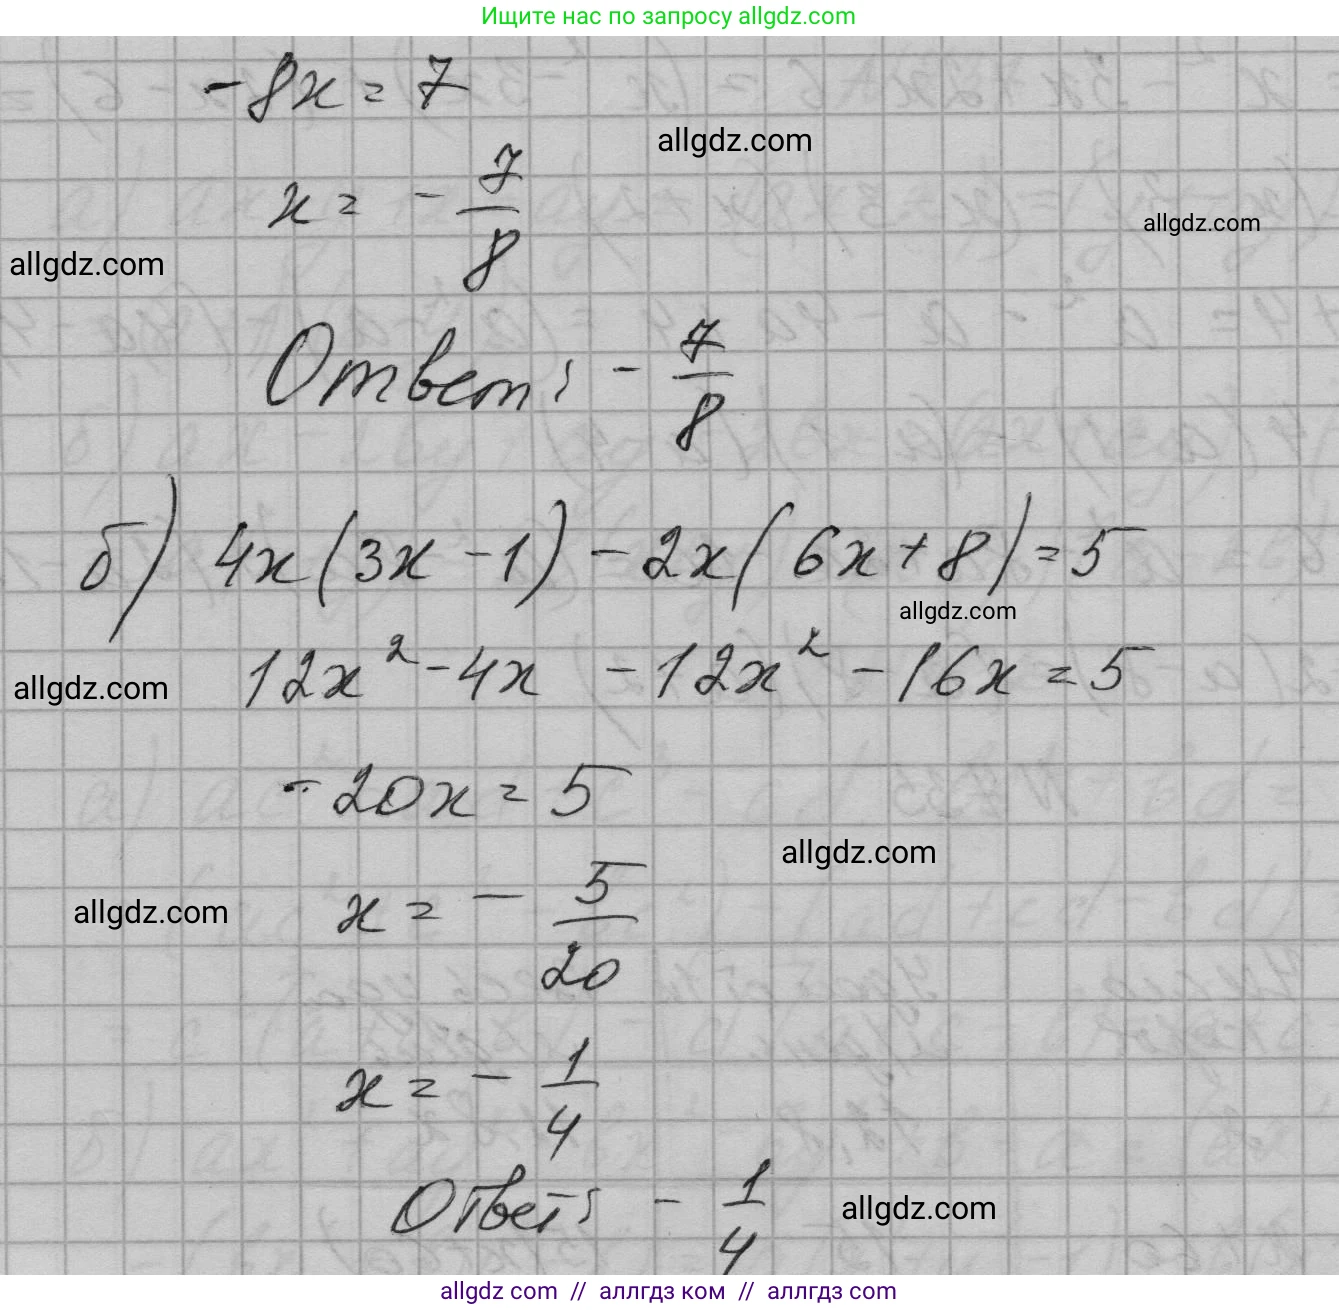 Ищите нас по запросу allgdz.com
-8x = 7
allgdz.com
x = - 7/8
allgdz.com
allgdz.com
Ответ: - 7/8
б) 4x(3x - 1) - 2x(6x + 8) = 5
allgdz.com
12x² - 4x - 12x² - 16x = 5
allgdz.com
-20x = 5
allgdz.com
x = - 5/20
allgdz.com
x = - 1/4
Ответ: - 1/4
allgdz.com
allgdz.com // аллгдз ком // allgdz.com